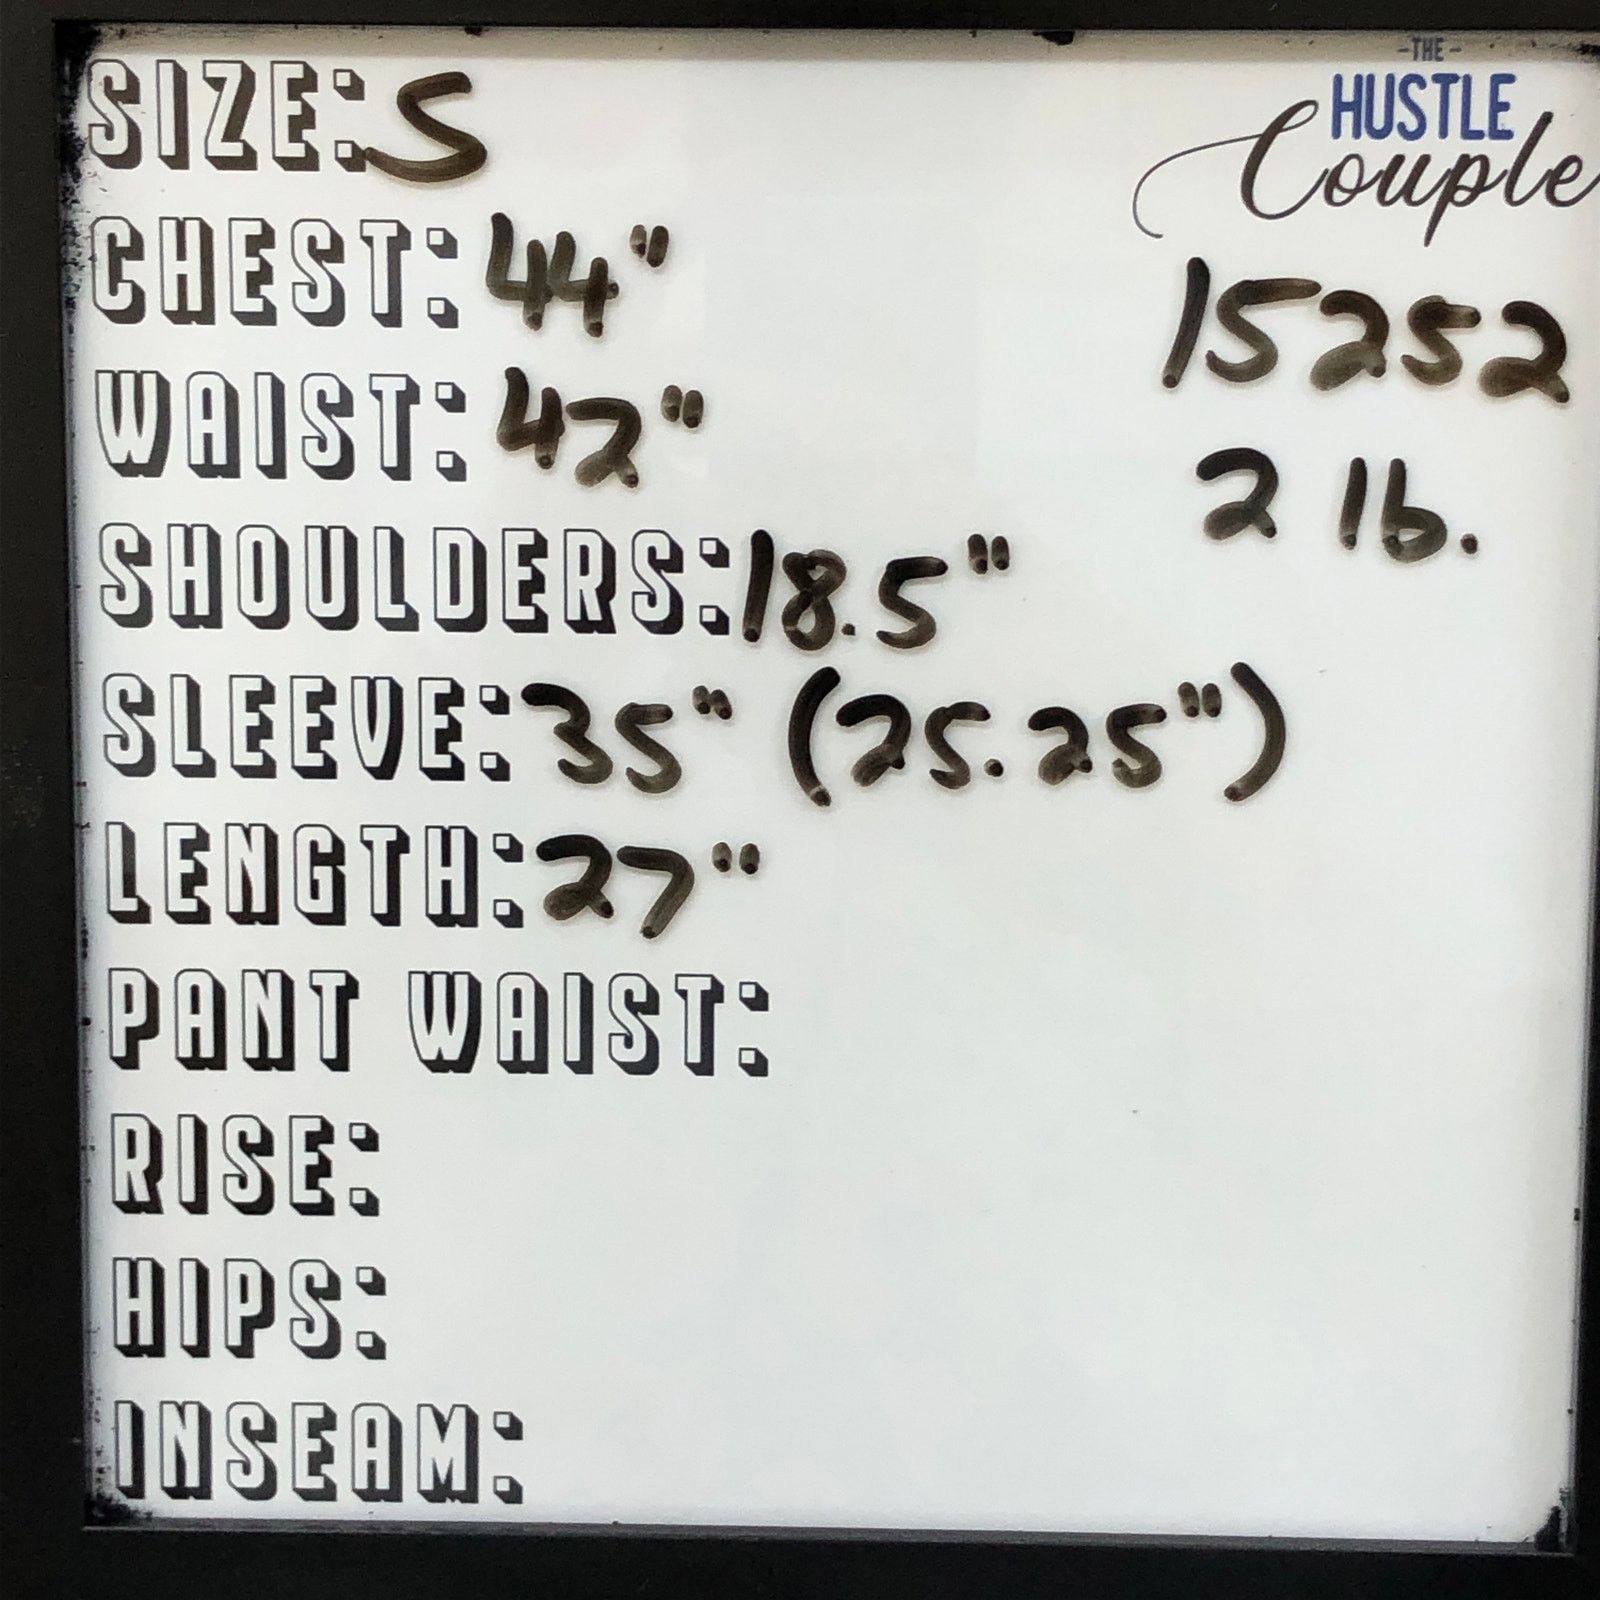 -THE-
HUSTLE
Couple
SIZE: S
CHEST: 44"
15252
WAIST: 42"
2 lb.
SHOULDERS: 18.5"
SLEEVE: 35" (25.25")
LENGTH: 27"
PANT WAIST:
RISE:
HIPS:
INSEAM: